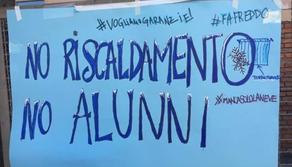 #VOGLIAMOGARANZIE!
#FAFREDDO
NO RISCALDAMENTO
NO ALUNNI
#MANCASOLOLANEVE